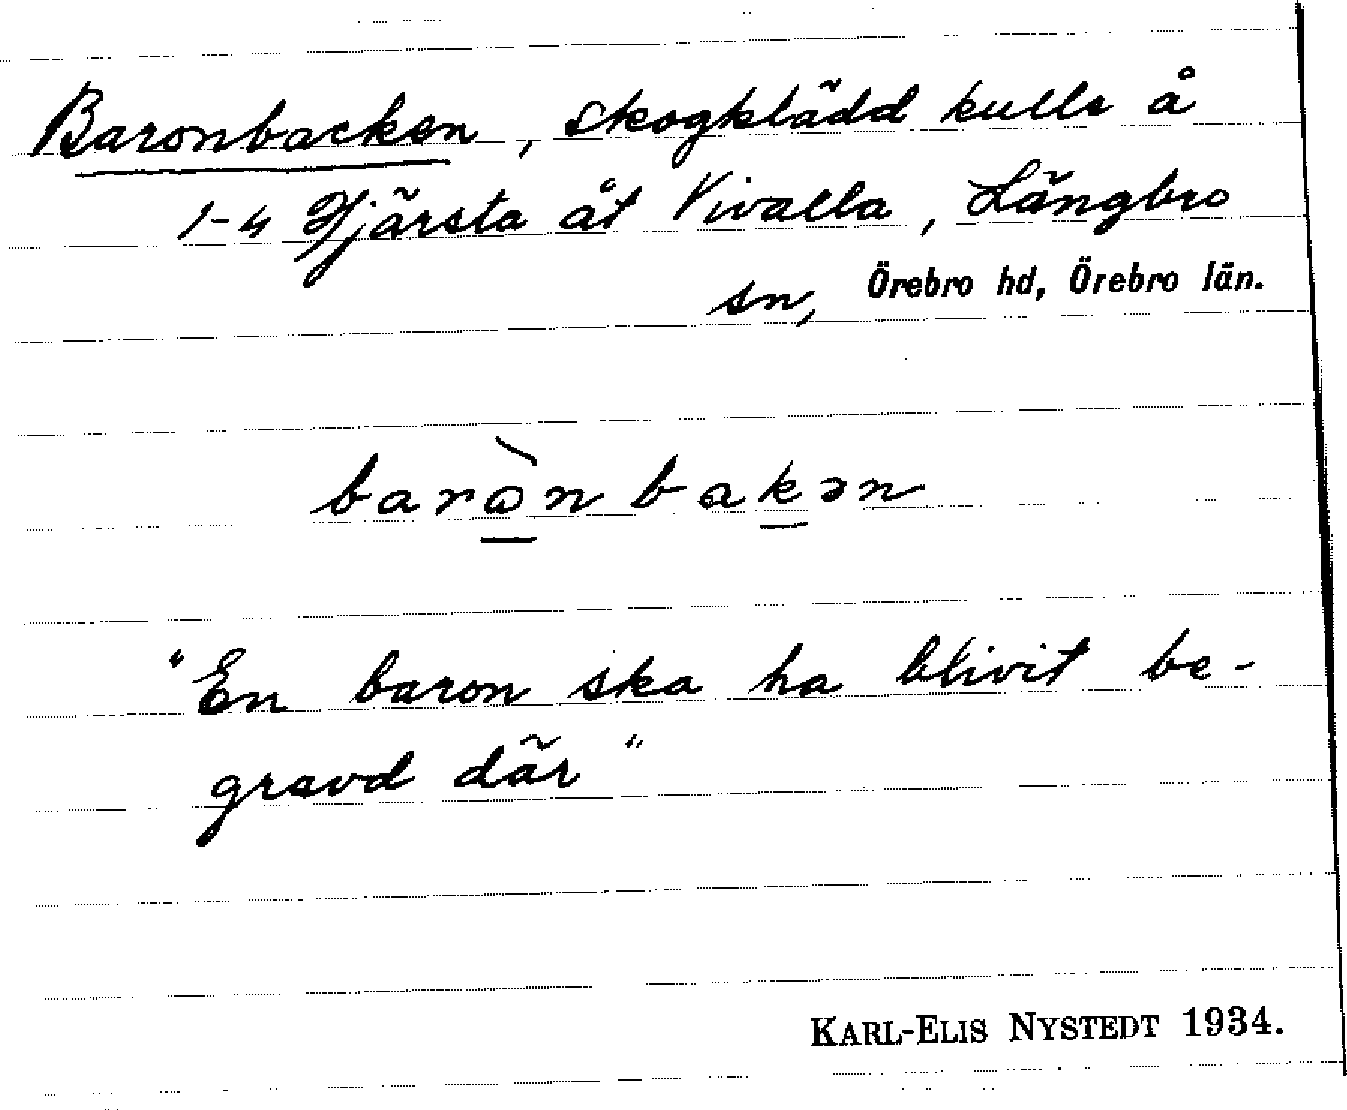 Baronbacken, skogklädd kulle å
1-4 Hjärsta åt Vivalla, Längbro
sn, Örebro hd, Örebro län.
barὼnbakən
"En baron ska ha blivit be-
gravd där"
KARL-ELIS NYSTEDT 1934.